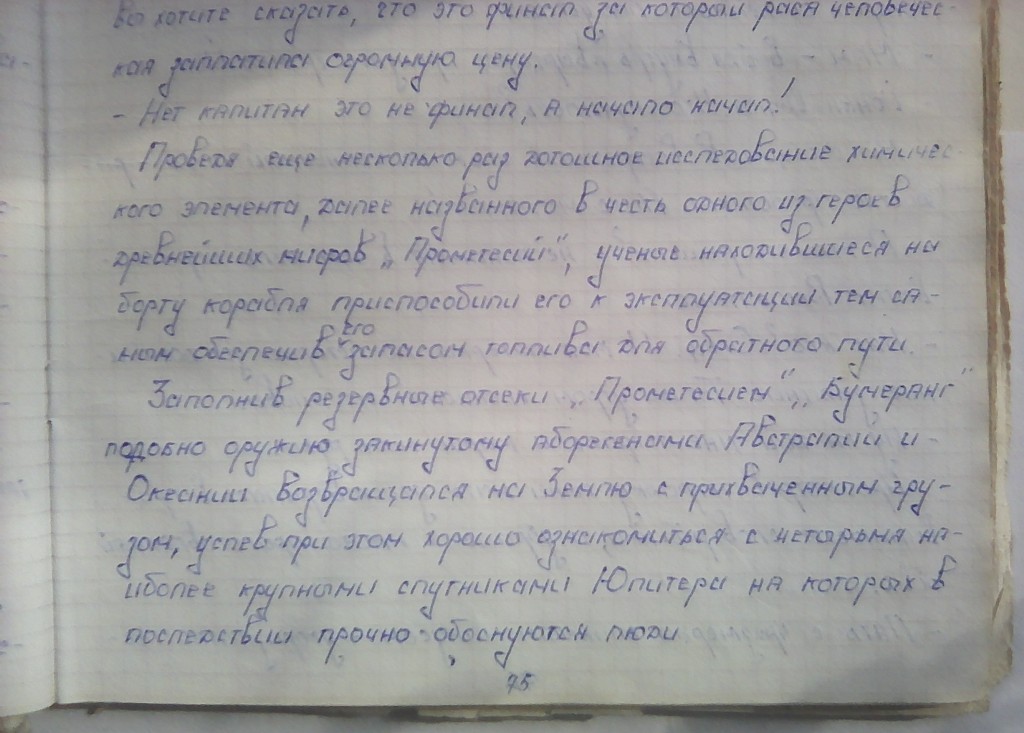 вы хотите сказать, что это финал за который раса человечес-
кая заплатила огромную цену.
- Нет капитан это не финал, а начало начал!
Проведя еще несколько раз дотошное исследование химичес-
кого элемента, далее названного в честь одного из героев
древнейших мифов „Прометесий", ученые находившиеся на
борту корабля приспособили его к эксплуатации тем са-
мым обеспечив его запасом топлива для обратного пути.
Заполнив резервные отсеки „Прометесием", „Бумеранг"
подобно оружию закинутому аборегенами Австралии и
Океании возвращался на Землю с прихваченным гру-
зом, успев при этом хорошо ознакомиться с четырьмя на-
иболее крупными спутниками Юпитера на которых в
последствии прочно обоснуются люди
75